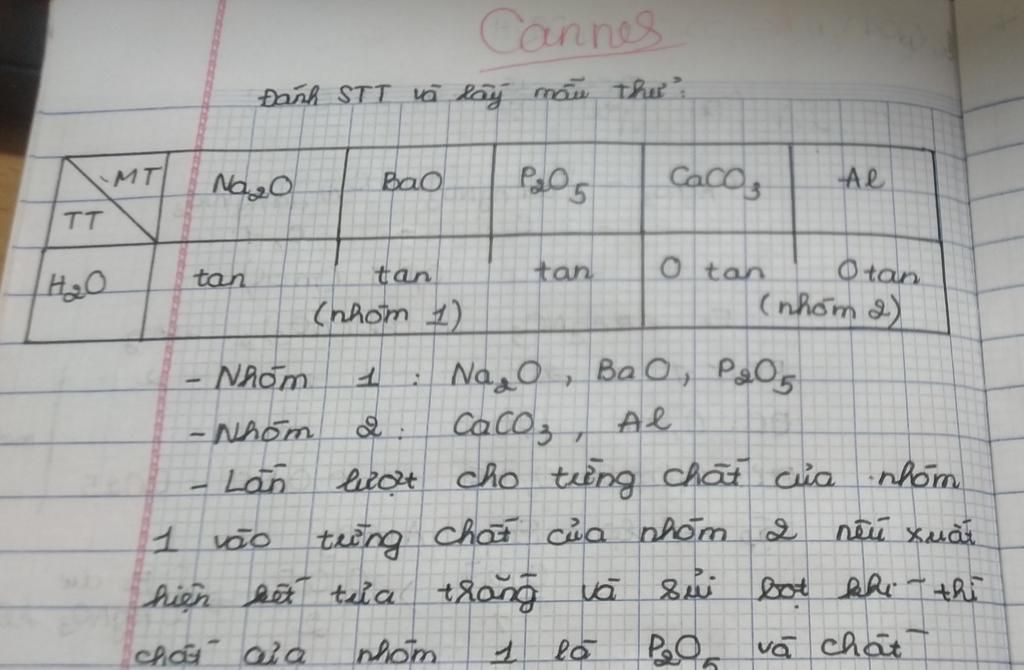 Cannes
Đánh STT và lấy mẫu thử:
MT
TT
Na₂O BaO P₂O₅ CaCO₃ Al
H₂O tan tan tan O tan O tan
(nhóm 1) (nhóm 2)
- Nhóm 1 : Na₂O , BaO , P₂O₅
- Nhóm 2 : CaCO₃ , Al
- Lần lượt cho từng chất của nhóm
1 vào từng chất của nhóm 2 nếu xuất
hiện kết tủa trắng và sủi bọt khí thì
chất của nhóm 1 là P₂O₅ và chất